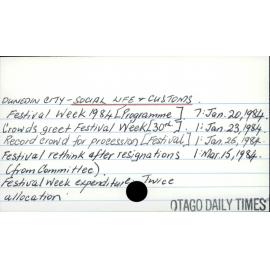 DUNEDIN CITY - SOCIAL LIFE & CUSTOMS.
Festival Week 1984 [Programme]. 7: Jan. 20, 1984.
Crowds greet Festival Week [30st]. 1: Jan. 23, 1984.
Record crowd for procession [Festival] 1: Jan. 26, 1984.
Festival rethink after resignations 1: Mar. 15, 1984.
(from Committee).
Festival Week expenditure Twice
allocation
OTAGO DAILY TIMES